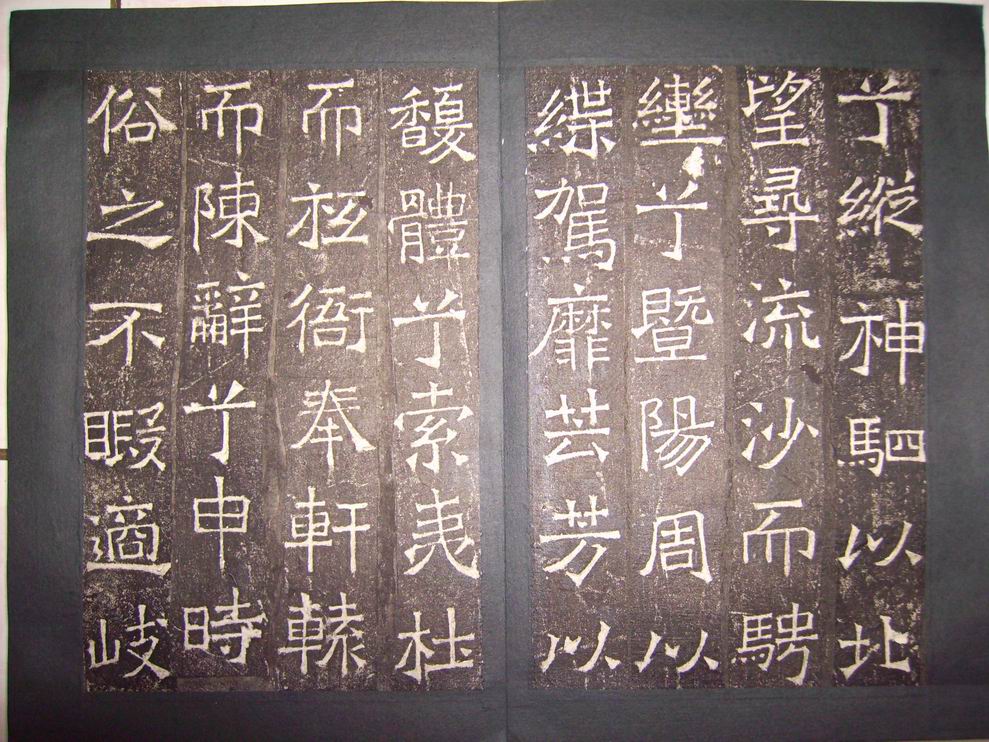 兮縱神駟以北
望尋流沙而騁
轡兮暨陽周以
緤駕靡芸芳以
馥體兮索夷杜
而衙奉軒轅
而陳辭兮申時
俗之不暇適岐